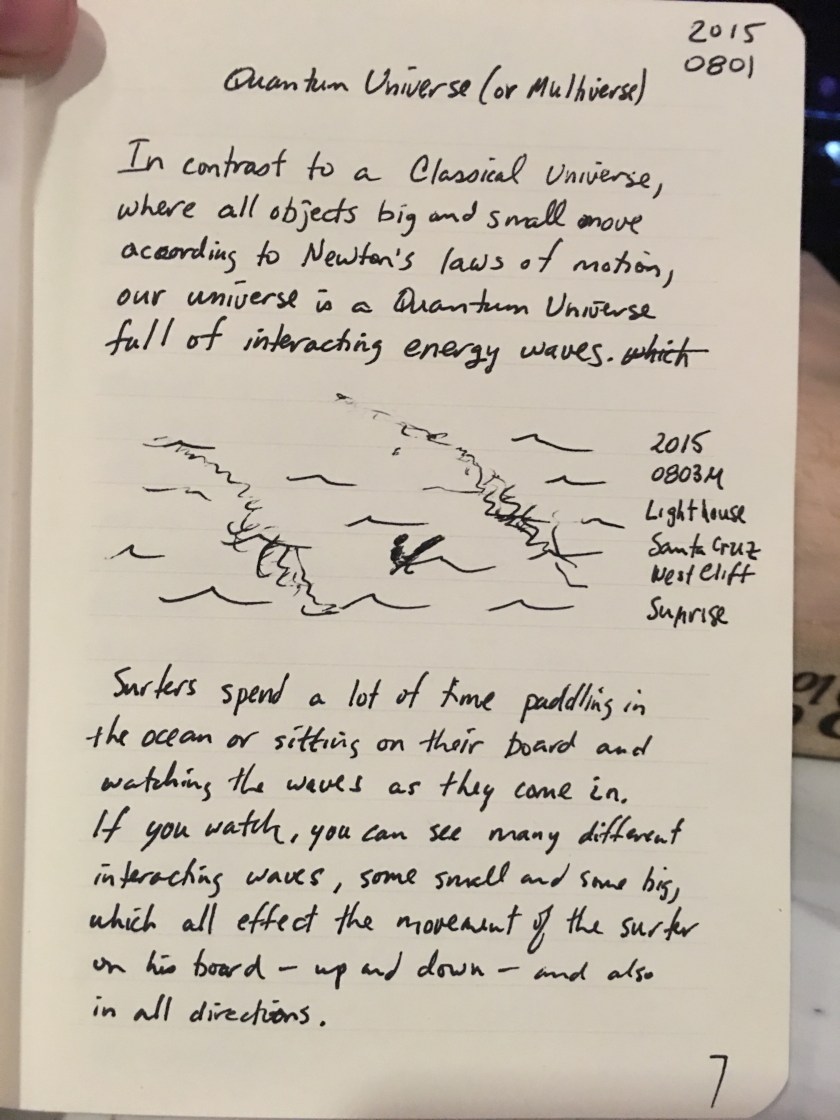 2015
0801
Quantum Universe (or Multiverse)
In contrast to a Classical Universe,
where all objects big and small move
according to Newton's laws of motion,
our universe is a Quantum Universe
full of interacting energy waves. which
2015
0803M
Lighthouse
Santa Cruz
West Cliff
Sunrise
Surfers spend a lot of time paddling in
the ocean or sitting on their board and
watching the waves as they come in.
If you watch, you can see many different
interacting waves, some small and some big,
which all effect the movement of the surfer
on his board - up and down - and also
in all directions.
7